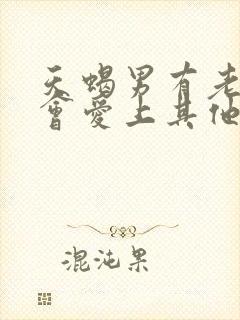 天蝎男有老
會愛上其他
混沌果